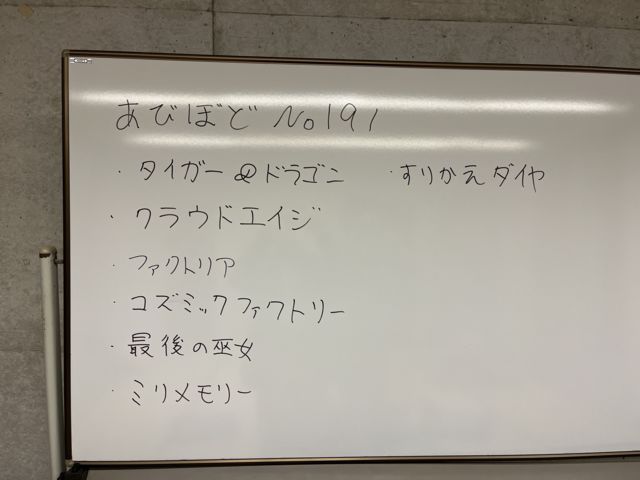 あびぼど No191
・タイガー&ドラゴン
・クラウドエイジ
・ファクトリア
・コズミックファクトリー
・最後の巫女
・ミリメモリー
・すりかえダイヤ